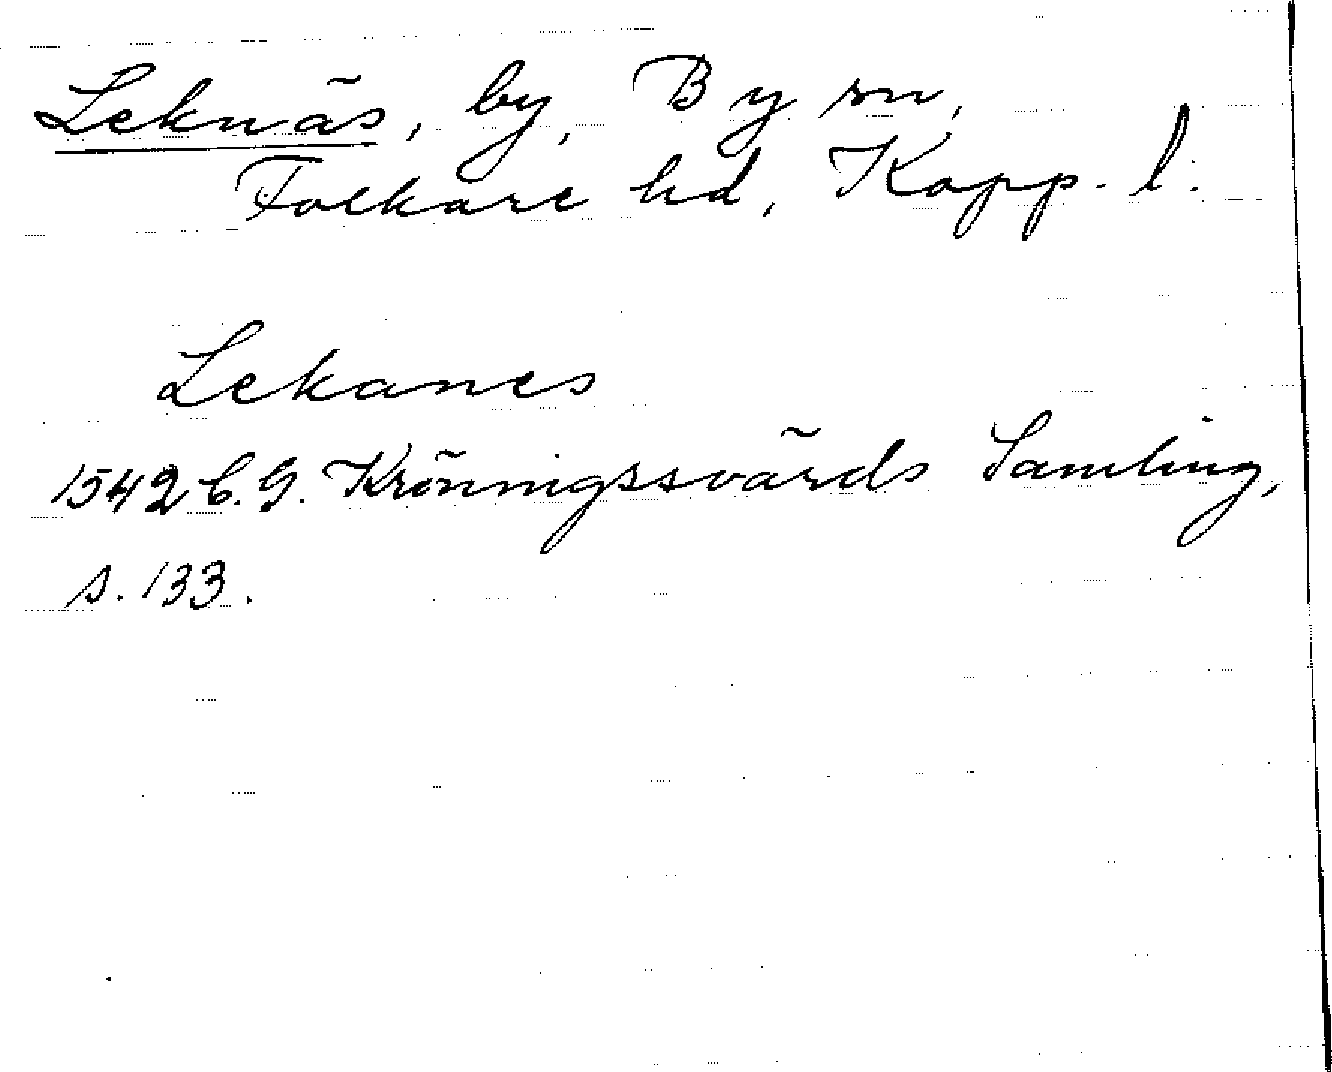 Leknäs, by, By sn,
Folkare hd, Kopp. l.
Lekanes
1542 C. G. Kröningssvärds Samling,
s. 133.